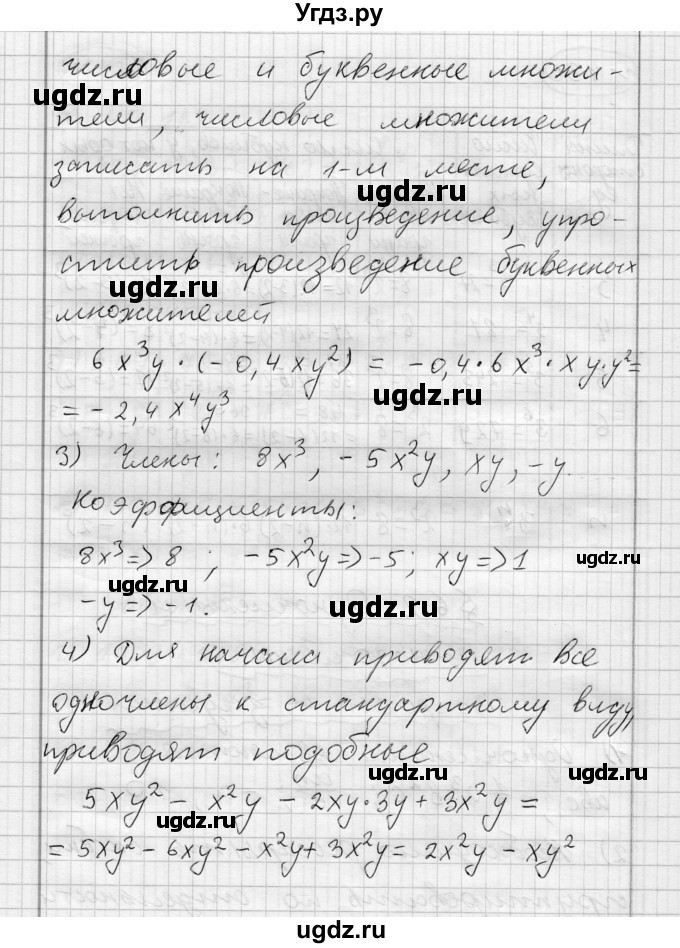 Угдз.ру
числовые и буквенные множи-
ugdz.ru ugdz.ru
тели, числовые множители
записать на 1-м месте,
ugdz.ru
выполнить произведение, упро-
стить произведение буквенных
ugdz.ru ugdz.ru
множителей
6x³y · (-0,4xy²) = -0,4·6x³·xy·y²=
ugdz.ru
= -2,4x⁴y³
3) Члены: 8x³, -5x²y, xy, -y.
Коэффициенты:
8x³=>8; -5x²y=>-5; xy=>1
ugdz.ru
ugdz.ru
-y=>-1.
ugdz.ru
4) Для начала приводят все
одночлены к стандартному виду,
приводят подобные
ugdz.ru
5xy² - x²y - 2xy·3y + 3x²y =
ugdz.ru
= 5xy² - 6xy² - x²y + 3x²y = 2x²y - xy²
ugdz.ru ugdz.ru